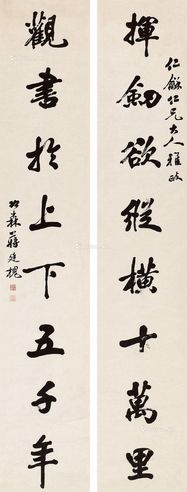 仁龢仁兄大人雅政
揮劍欲縱橫十萬里
觀書於上下五千年
蔣廷梘